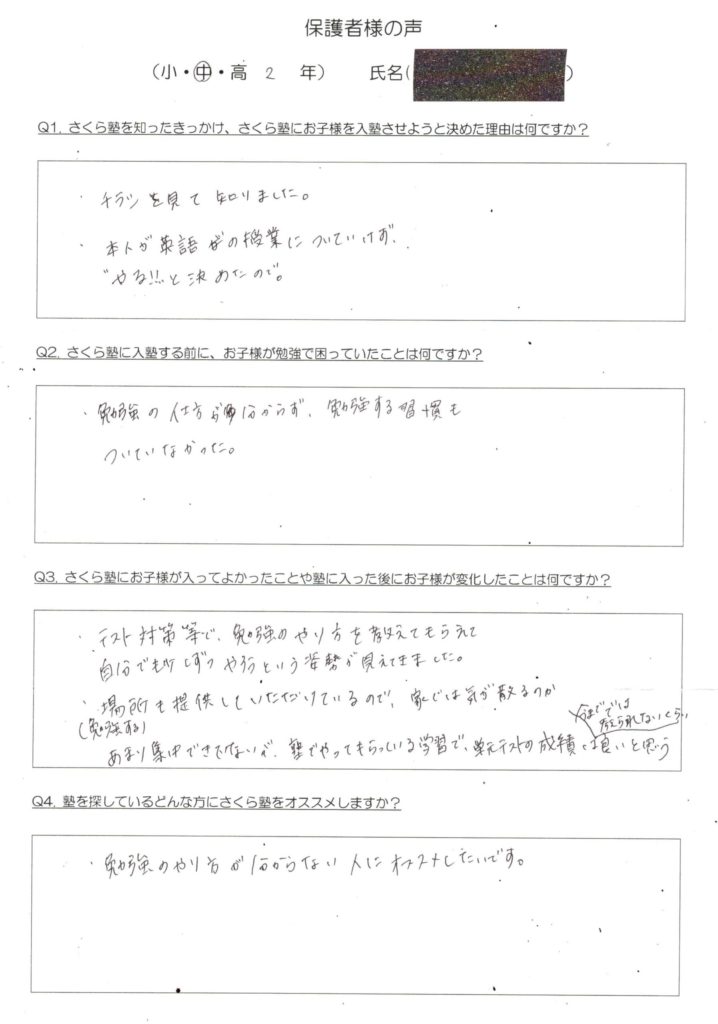 保護者様の声
(小・中・高 2 年) 氏名( )
Q1. さくら塾を知ったきっかけ、さくら塾にお子様を入塾させようと決めた理由は何ですか?
・チラシを見て知りました。
・本人が英語の授業についていけず、
"やる!!"と決めたので。
Q2. さくら塾に入塾する前に、お子様が勉強で困っていたことは何ですか?
・勉強の仕方が分からず、勉強する習慣も
ついていなかった。
Q3. さくら塾にお子様が入ってよかったことや塾に入った後にお子様が変化したことは何ですか?
・テスト対策等で、勉強のやり方を教えてもらえて
自分でも少しずつやろうという姿勢が見えてきました。
・場所も提供していただけているので、家では気が散るのか
(勉強する)
今まででは
ないくらい
あまり集中できないが、塾でやってもらっている学習で、単元テストの成績は良いと思う
Q4. 塾を探しているどんな方にさくら塾をオススメしますか?
・勉強のやり方が分からない人にオススメしたいです。